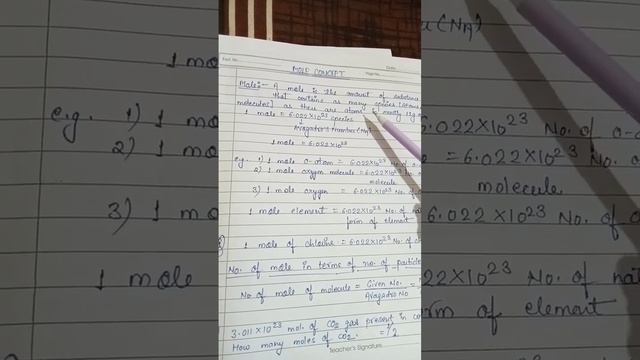 MOLE CONCEPT
Mole:- A mole is the amount of substance
that contains as many species [Atoms
molecules] as there are atoms in exactly 12g
1 mole = 6.022×10²³ species
Avogadro Number (NA)
1 mole = 6.022×10²³
e.g. 1) 1 mole O-atom = 6.022×10²³ No. of
2) 1 mole oxygen molecule = 6.022×10²³
molecule
3) 1 mole oxygen = 6.022×10²³ No. of
1 mole element = 6.022×10²³ No. of
form of element
1 mole of chlorine = 6.022×10²³ No. of
No. of mole in terms of no. of particle
No of mole of molecule = Given No. =
Avogadro No
3.011×10²³ mol. of CO₂ gas present in
How many moles of CO₂. = 1/2
Teacher's Signature
1 mo
e.g. 1) 1 mo
2) 1 mo
3) 1 mo
1 mole
(NA)
6.022×10²³ No. of
= 6.022×10²³
molecule
6.022×10²³ No. of
.022×10²³ No. of
rm of element